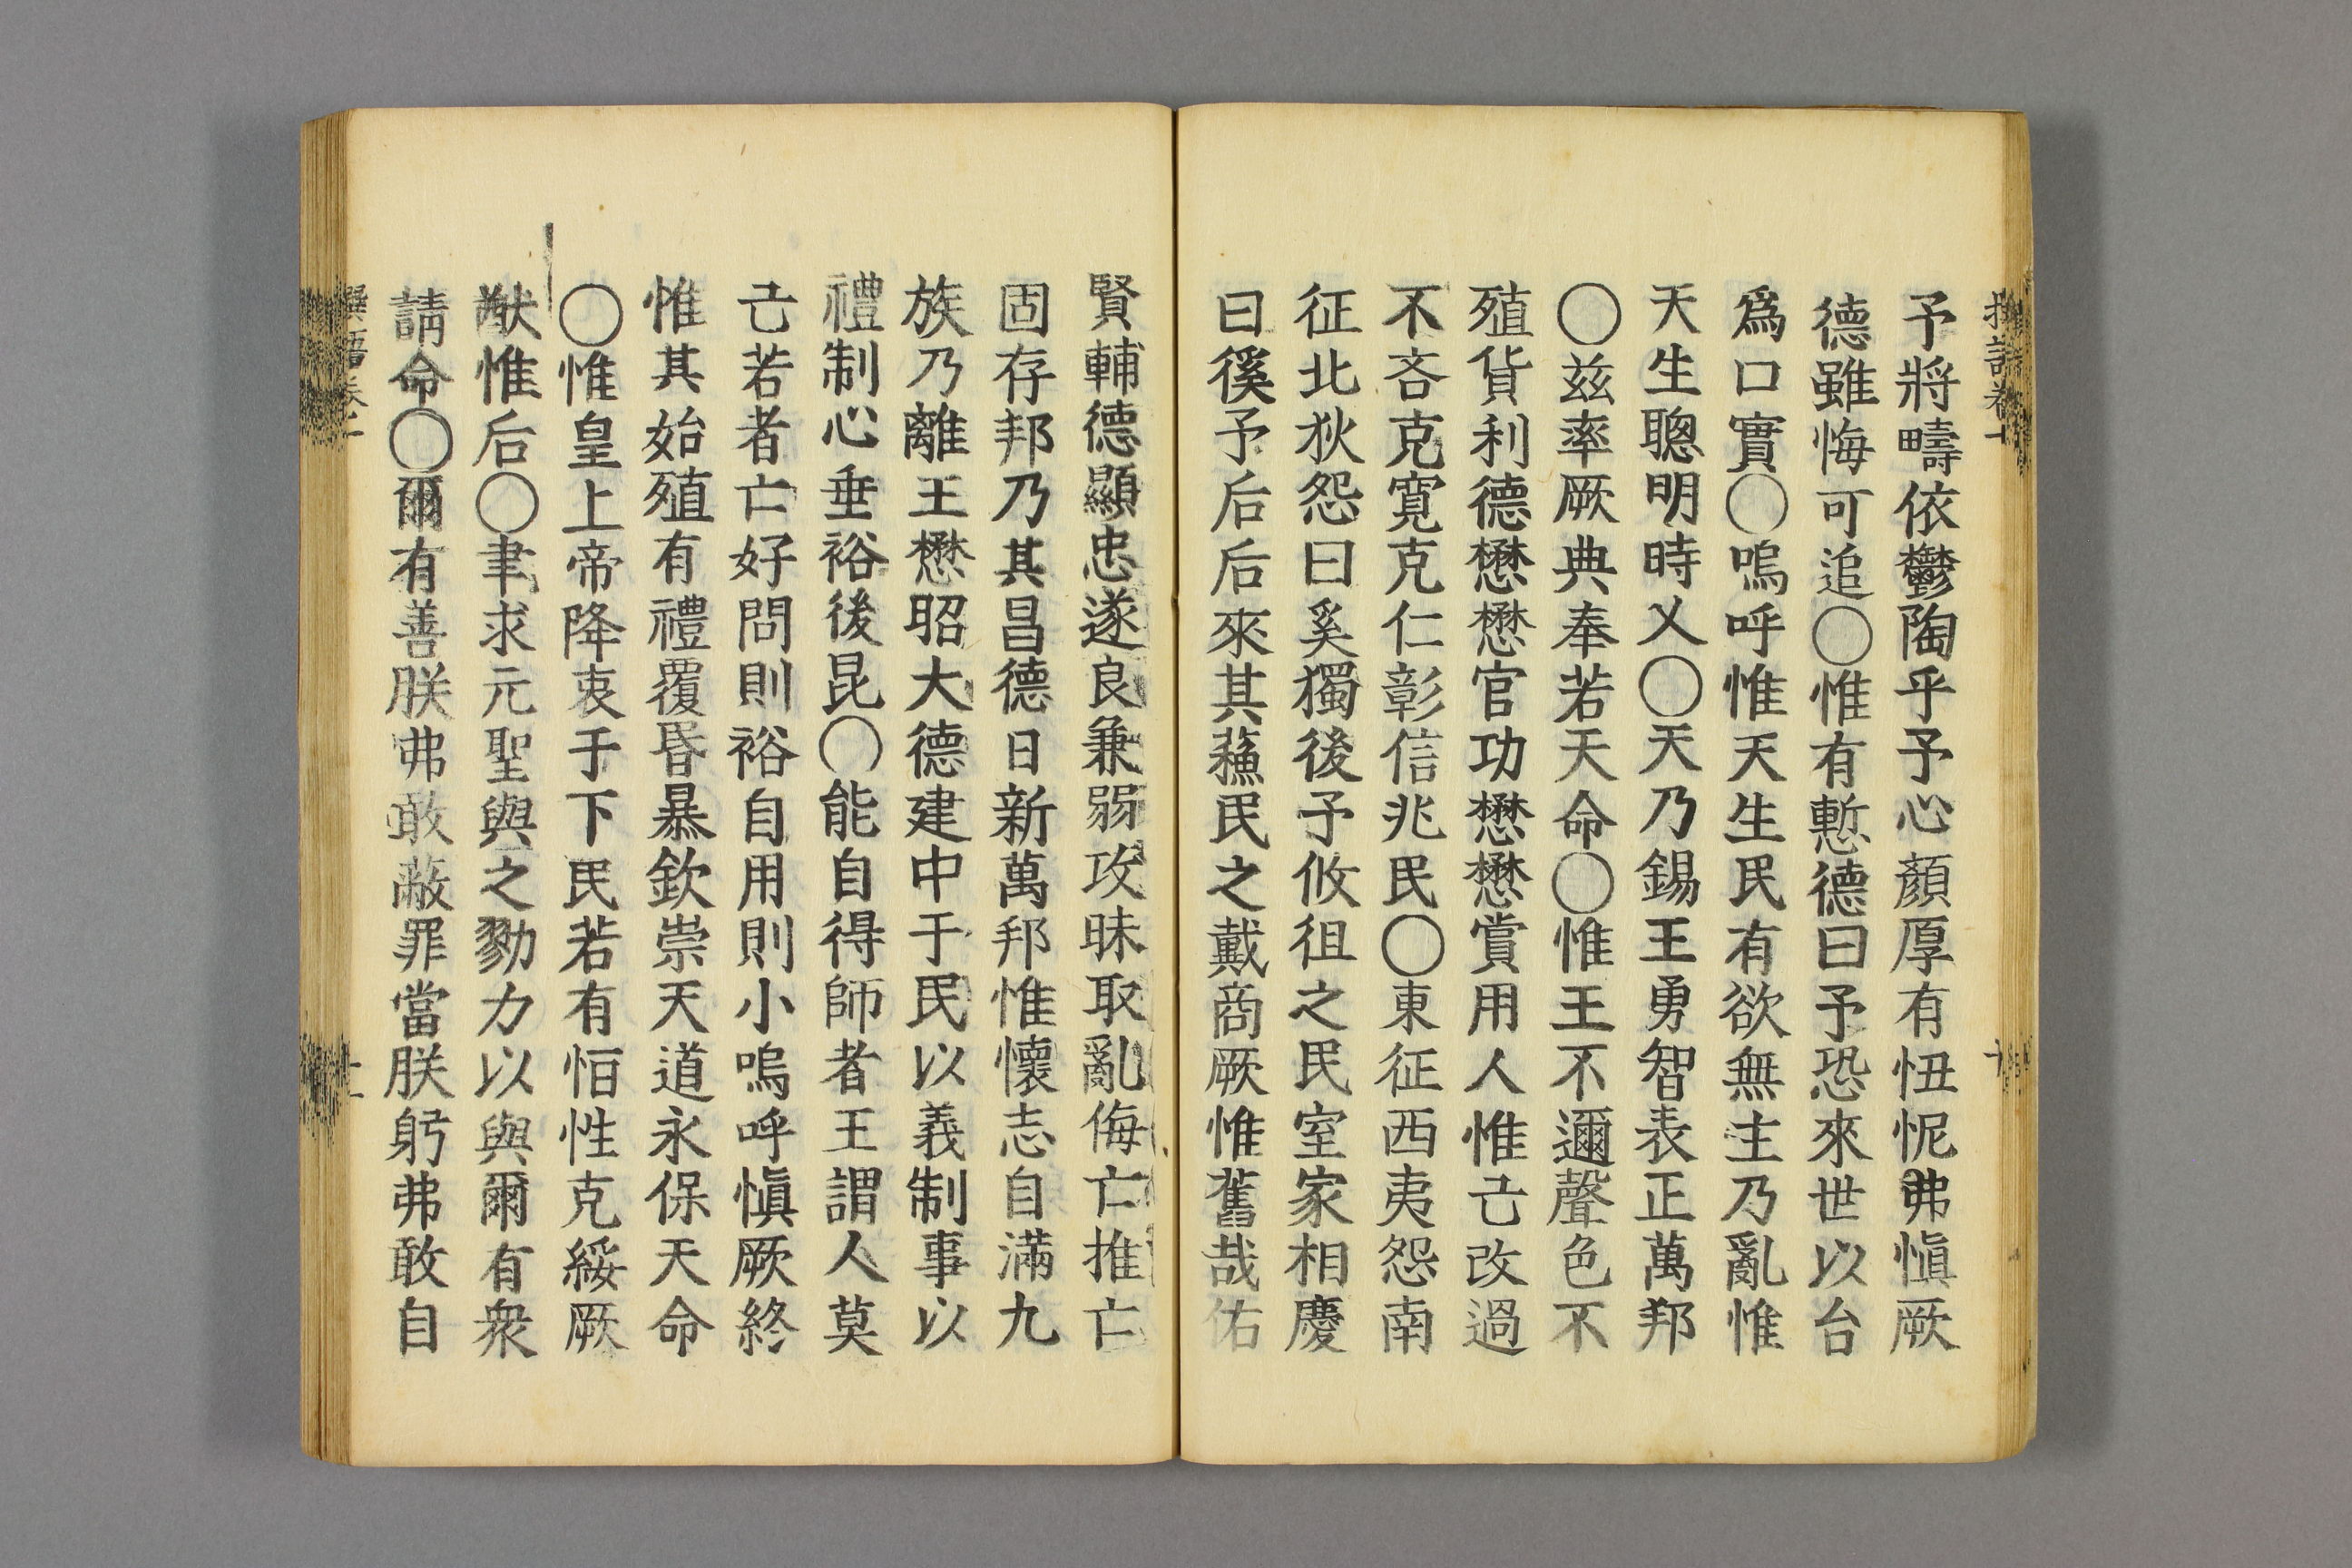 予將疇依鬱陶乎予心顏厚有忸怩弗愼厥
德雖悔可追〇惟有慙德曰予恐來世以台
爲口實〇嗚呼惟天生民有欲無主乃亂惟
天生聰明時乂〇天乃錫王勇智表正萬邦
〇茲率厥典奉若天命〇惟王不邇聲色不
殖貨利德懋懋官功懋懋賞用人惟己改過
不吝克寬克仁彰信兆民〇東征西夷怨南
征北狄怨曰奚獨後予攸徂之民室家相慶
曰徯予后后來其蘓民之戴商厥惟舊哉佑
賢輔德顯忠遂良兼弱攻昧取亂侮亡推亡
固存邦乃其昌德日新萬邦惟懷志自滿九
族乃離王懋昭大德建中于民以義制事以
禮制心垂裕後昆〇能自得師者王謂人莫
己若者亡好問則裕自用則小嗚呼愼厥終
惟其始殖有禮覆昬暴欽崇天道永保天命
〇惟皇上帝降衷于下民若有恒性克綏厥
猷惟后〇聿求元聖與之勠力以與爾有衆
請命〇爾有善朕弗敢蔽罪當朕躬弗敢自